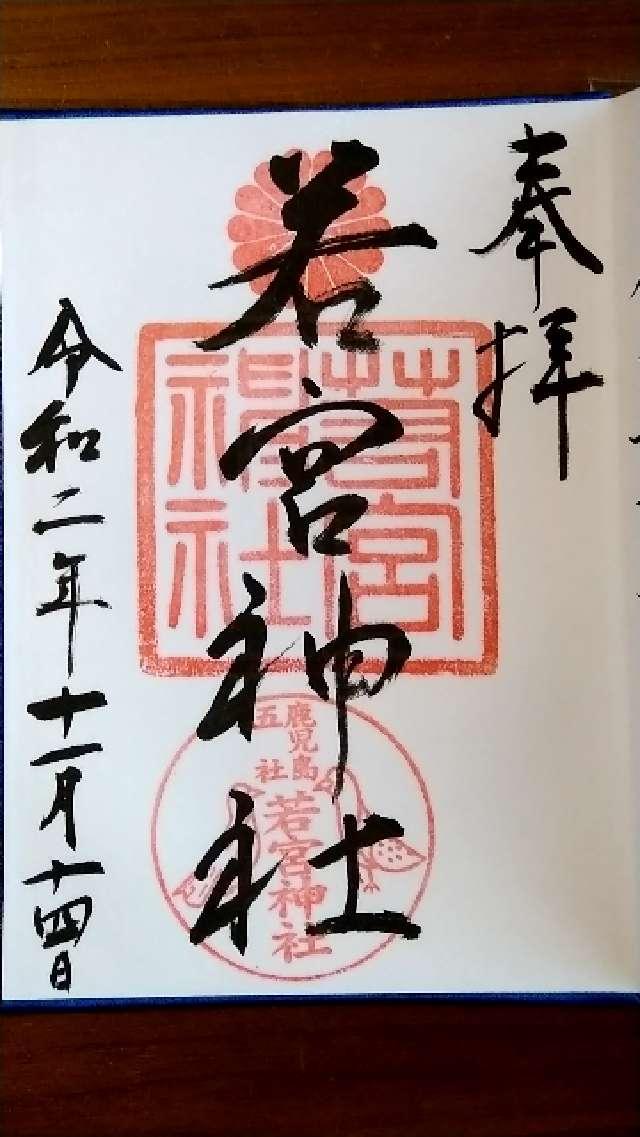 奉拝
若宮神社
若宮
神社
鹿児島
五社
若宮神社
令和二年十一月十四日